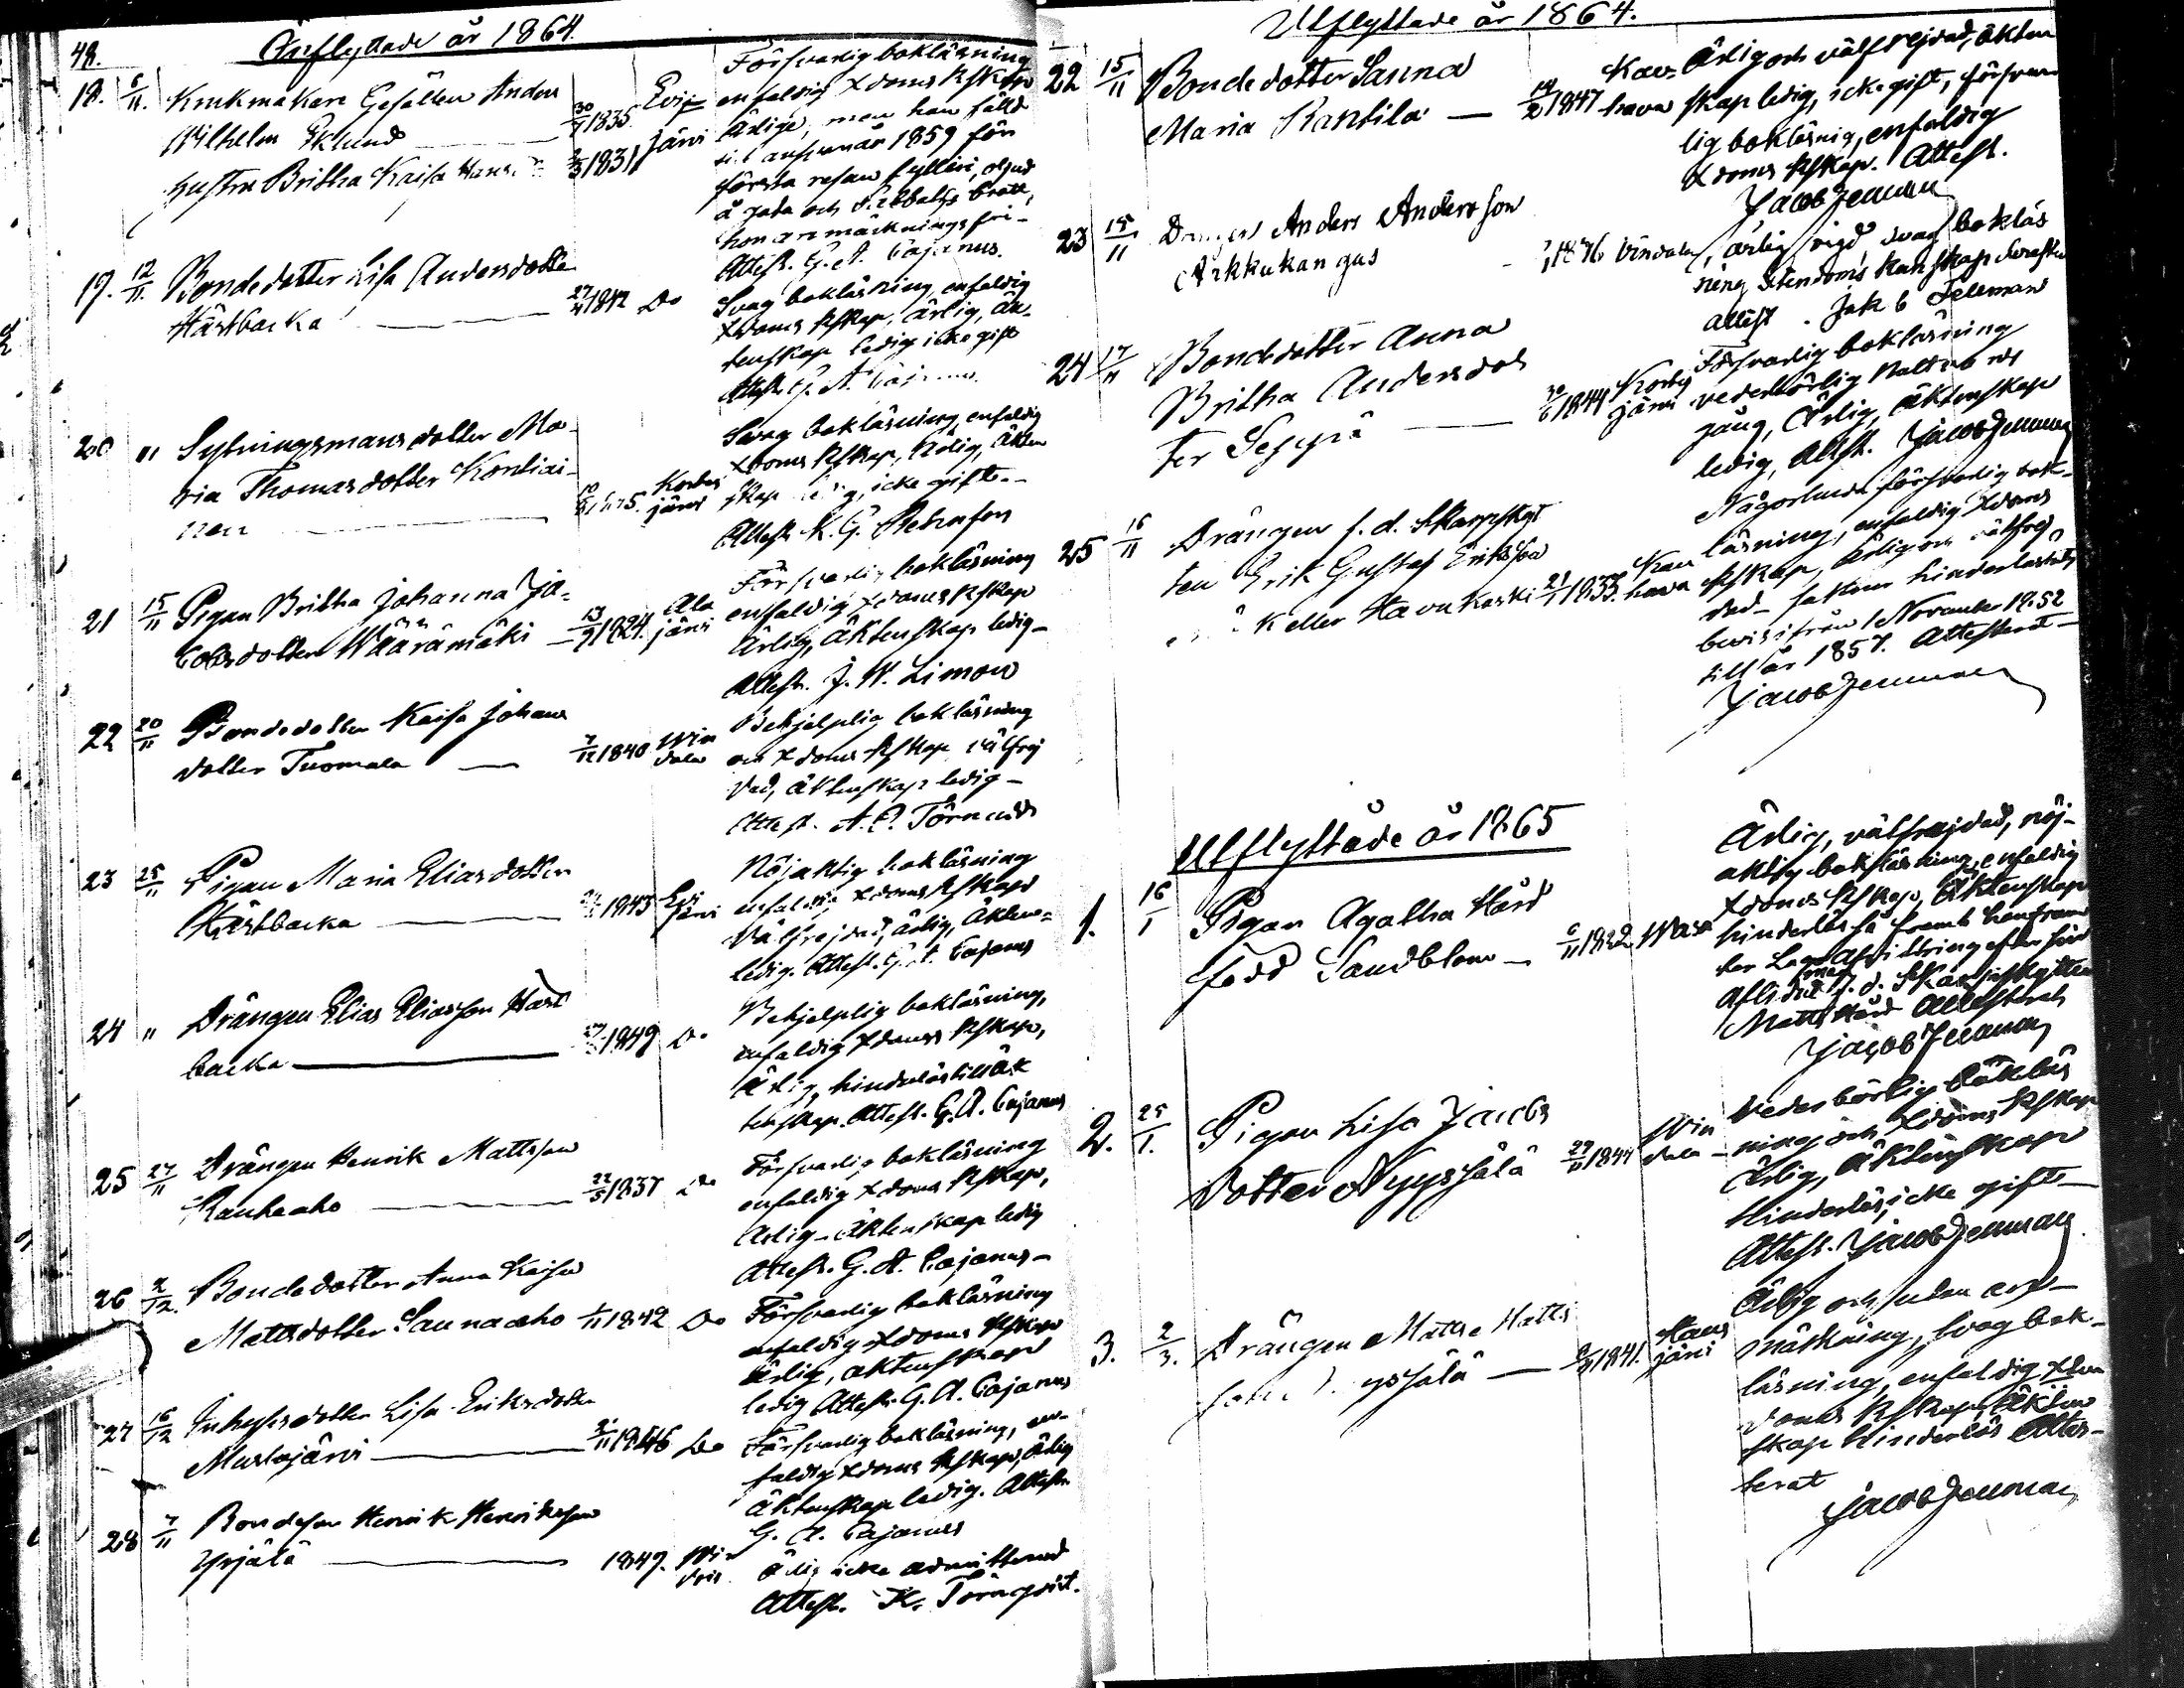 48.
Inflyttade år 1864.
18. 6/11. Krukmakare Gesällen Anders
Wilhelm Eklund 30/7 1835. Evi=
hustru Britha Kaisa Hans 2/3 1831 järvi
Försvarlig bokläsning
enfaldig Xdoms kskap
ärlig, men han fälld
1859 för
första resan fylleri,
å och Sabbats brott,
hon anmärkningsfri-
Attest. G. A. Cajanus.
19. 12/11. Bondedotter Lisa Andersdotter
Härtbacka 1842 Do
Svag bokläsning, enfaldig
Xdoms kskap, ärlig, äk-
tenskap ledig icke gift
Attest. G. A. Cajanus.
20 " Sytningsmans dotter Ma-
ria Thomasdotter Kontiai-
nen Kortes
järvi
Svag bokläsning, enfaldig
Xdoms kskap, ärlig, äkten
skap ledig, icke gift.-
Attest. K. G.
21 15/11 Pigan Britha Johanna Ja-
cobsdotter Wäärämäki 13/9 1824. Ala
järvi
Försvarlig bokläsning
enfaldig Xdoms kskap
ärlig, äktenskap ledig-
Attest. J. W. Limon
22 20/11 Bondedotter Kaisa Johans
dotter Tuomala 7/12 1840 Win
dala
Behjelplig bokläsning
och Xdoms kskap välfrej
dad, äktenskap ledig-
Attest. A. E. Törnudd
23 25/11 Pigan Maria Eliasdotter
Härtbacka 1843 Evi
järvi
Nöjaktig bokläsning
enfaldig Xdoms kskap
Välfrejdad, ärlig, äkten=
ledig. Attest. G. A. Cajanus
24 " Drängen Elias Eliasson Härt
backa 1849 Do
Behjelplig bokläsning,
enfaldig Xdoms kskap,
ärlig, hinderlös till äk
tenskap. Attest. G. A. Cajanus
25 27/11 Drängen Henrik Mattsson
Rauhaaho 22/5 1837 Do
Försvarlig bokläsning
enfaldig Xdoms kskap,
ärlig- äktenskap ledig
Attest. G. A. Cajanus-
26 2/12. Bondedotter Anna Kaisa
Mattsdotter Saunaaho 1/11 1842 Do
Försvarlig bokläsning
enfaldig Xdoms kskap
ärlig, äktenskap
ledig Attest. G. A. Cajanus
27 16/12 Inhysesdotter Lisa Eriksdotter
Mustajärvi 1846 Do
Försvarlig bokläsning, en-
faldig Xdoms kskap, ärlig
äktenskap ledig. Attest.
G. A. Cajanus
28 7/11 Bondeson Henrik Henriksson
Yrjälä 1847. Win
dala
ärlig icke admitterad
Attest. K. Törnqvist.
Utflyttade år 1864.
22 15/11 Bondedotter Sanna
Maria Rantila 1847 Kau-
hava
Ärlig och välfrejdad, äkten
skap ledig, icke gift, försvar
lig bokläsnig, enfaldig
Xdoms kskap. Attest.
Jacob Jenman
23 15/11 Drängen Anders Andersson
Arkkukangas 1846 Vindala
, ärlig frejd, svag bokläs
ning
attest. Jak b
24 17/11 Bondedotter Anna
Britha Andersdot
ter Seppä 30/6 1844 Kortes
järvi
Försvarlig bokläsning
vederbörlig Nattvards
gång, Ärlig, äktenskap
ledig, Attst. Jacob Jenman
25 16/11 Drängen f. d. Skarpskyt
ten Erik Gustaf Eriksson
eller Havukoski 21/1 1833. Kau
hava
Någorlunda försvarlig bok-
läsning, enfaldig Xdoms
kskap, ärlig och välfrej
dad- saknar hinderlöshets
bevis ifrån 1 November 1852
till år 1857. Attesterat-
Jacob Jenman
Utflyttade år 1865
1. 16/1 Pigan Agatha Hård
född Sandblom 6/11 1822 Wasa
Ärlig, välfrejdad, nöj-
aktig bokläsning, enfaldig
Xdoms kskap, Äktenskap
hinderlös så framt hon fram
ter Laga afvittring efter sin
Aflidne man f. d. Skarpskytten
Matts Hård Attesterat
Jacob Jenman
2. 25/1. Pigan Lisa Jacobs
dotter Nyyssälä 1844 Win
dala
Vederbörlig bokläs
ning och Xdoms kskap
Ärlig, äktenskap
hinderlös, icke gift-
Attest. Jacob Jenman
3. 2/3. Drängen Matts Matts
son yssälä 1841. Haus
järvi
Ärlig och utan an-
märkning, svag bok-
läsning, enfaldig Xten
doms kskap, äkten
skap hinderlös Attes-
terat
Jacob Jenman